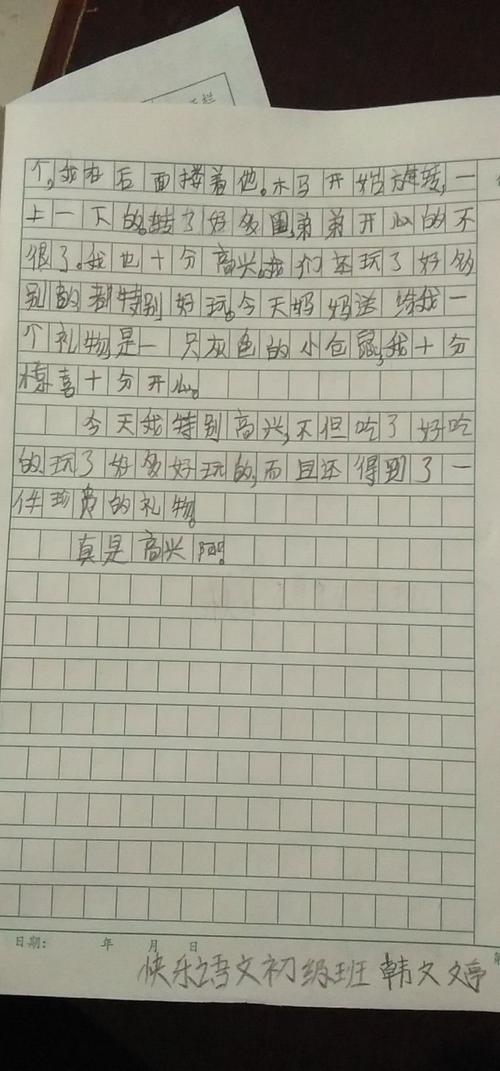 个,我在后面搂着他。木马开始旋转,一
上一下的。转了好多圈,弟弟开心的不
很了。我也十分高兴。我们还玩了好多
别的都特别好玩。今天妈妈送给我一
个礼物,是一只灰色的小仓鼠,我十分
惊喜十分开心。
今天我特别高兴,不但吃了好吃
的玩了好多好玩的,而且还得到了一
件珍贵的礼物。
真是高兴阿!
日期: 年 月 日
快乐语文初级班 韩文婷